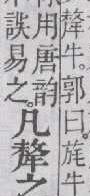 犛牛。郭曰。旄牛
用唐韵
誤易之。
凡犛之